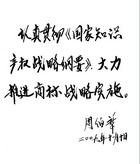 认真贯彻《国家知识
产权战略纲要》大力
推进商标战略实施。
周伯华
二〇〇九年十月十日